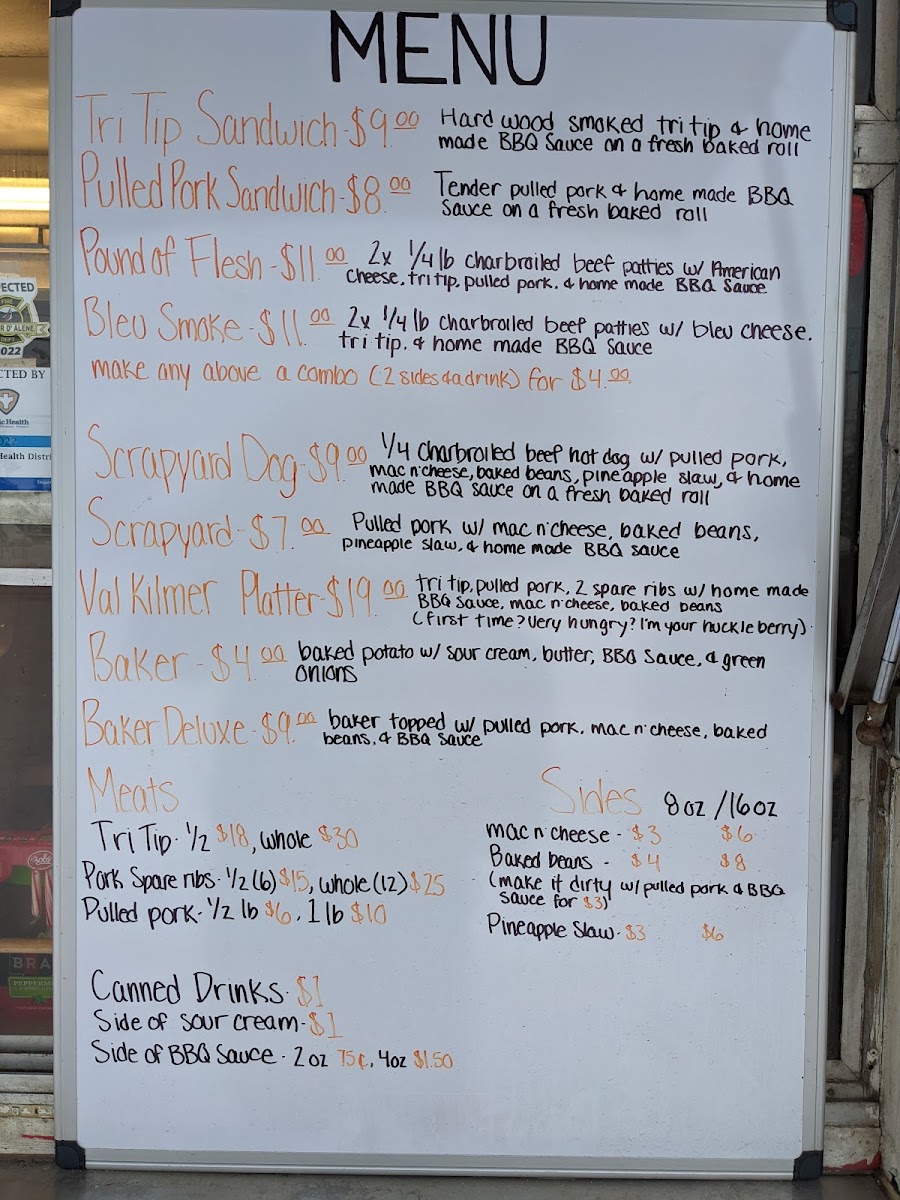 MENU
Tri Tip Sandwich-$9.00 Hard wood smoked tri tip & home
made BBQ Sauce on a fresh baked roll
Pulled Pork Sandwich-$8.00 Tender pulled pork & home made BBQ
Sauce on a fresh baked roll
Pound of Flesh-$11.00 2x 1/4 lb charbroiled beef patties w/ American
Cheese, tri tip, pulled pork, & home made BBQ Sauce
Bleu Smoke-$11.00 2x 1/4 lb charbroiled beef patties w/ bleu cheese,
tri tip, & home made BBQ Sauce
make any above a combo (2 sides & a drink) for $4.00
Scrapyard Dog-$9.00 1/4 charbroiled beef hot dog w/ pulled pork,
mac n' cheese, baked beans, pineapple slaw, & home
made BBQ sauce on a fresh baked roll
Scrapyard-$7.00 Pulled pork w/ mac n' cheese, baked beans,
pineapple slaw, & home made BBQ sauce
Val Kilmer Platter-$19.00 tri tip, pulled pork, 2 spare ribs w/ home made
BBQ Sauce, mac n' cheese, baked beans
(first time? Very hungry? I'm your huckle berry)
Baker-$4.00 baked potato w/ sour cream, butter, BBQ Sauce, & green
onions
Baker Deluxe-$9.00 baker topped w/ pulled pork, mac n' cheese, baked
beans, & BBQ Sauce
Meats
Tri Tip- 1/2 $18, whole $30
Pork Spare ribs- 1/2 (6) $15, whole (12) $25
Pulled pork- 1/2 lb $6, 1 lb $10
Sides 8oz/16oz
mac n' cheese - $3 $6
Baked beans - $4 $8
(make it dirty w/ pulled pork & BBQ
Sauce for $3)
Pineapple Slaw- $3 $6
Canned Drinks- $1
Side of sour cream-$1
Side of BBQ Sauce - 2oz 75¢, 4oz $1.50
FIRE
2022
CTED BY
ic Health
Health Distri
Bob's
BRA
PEPPERM